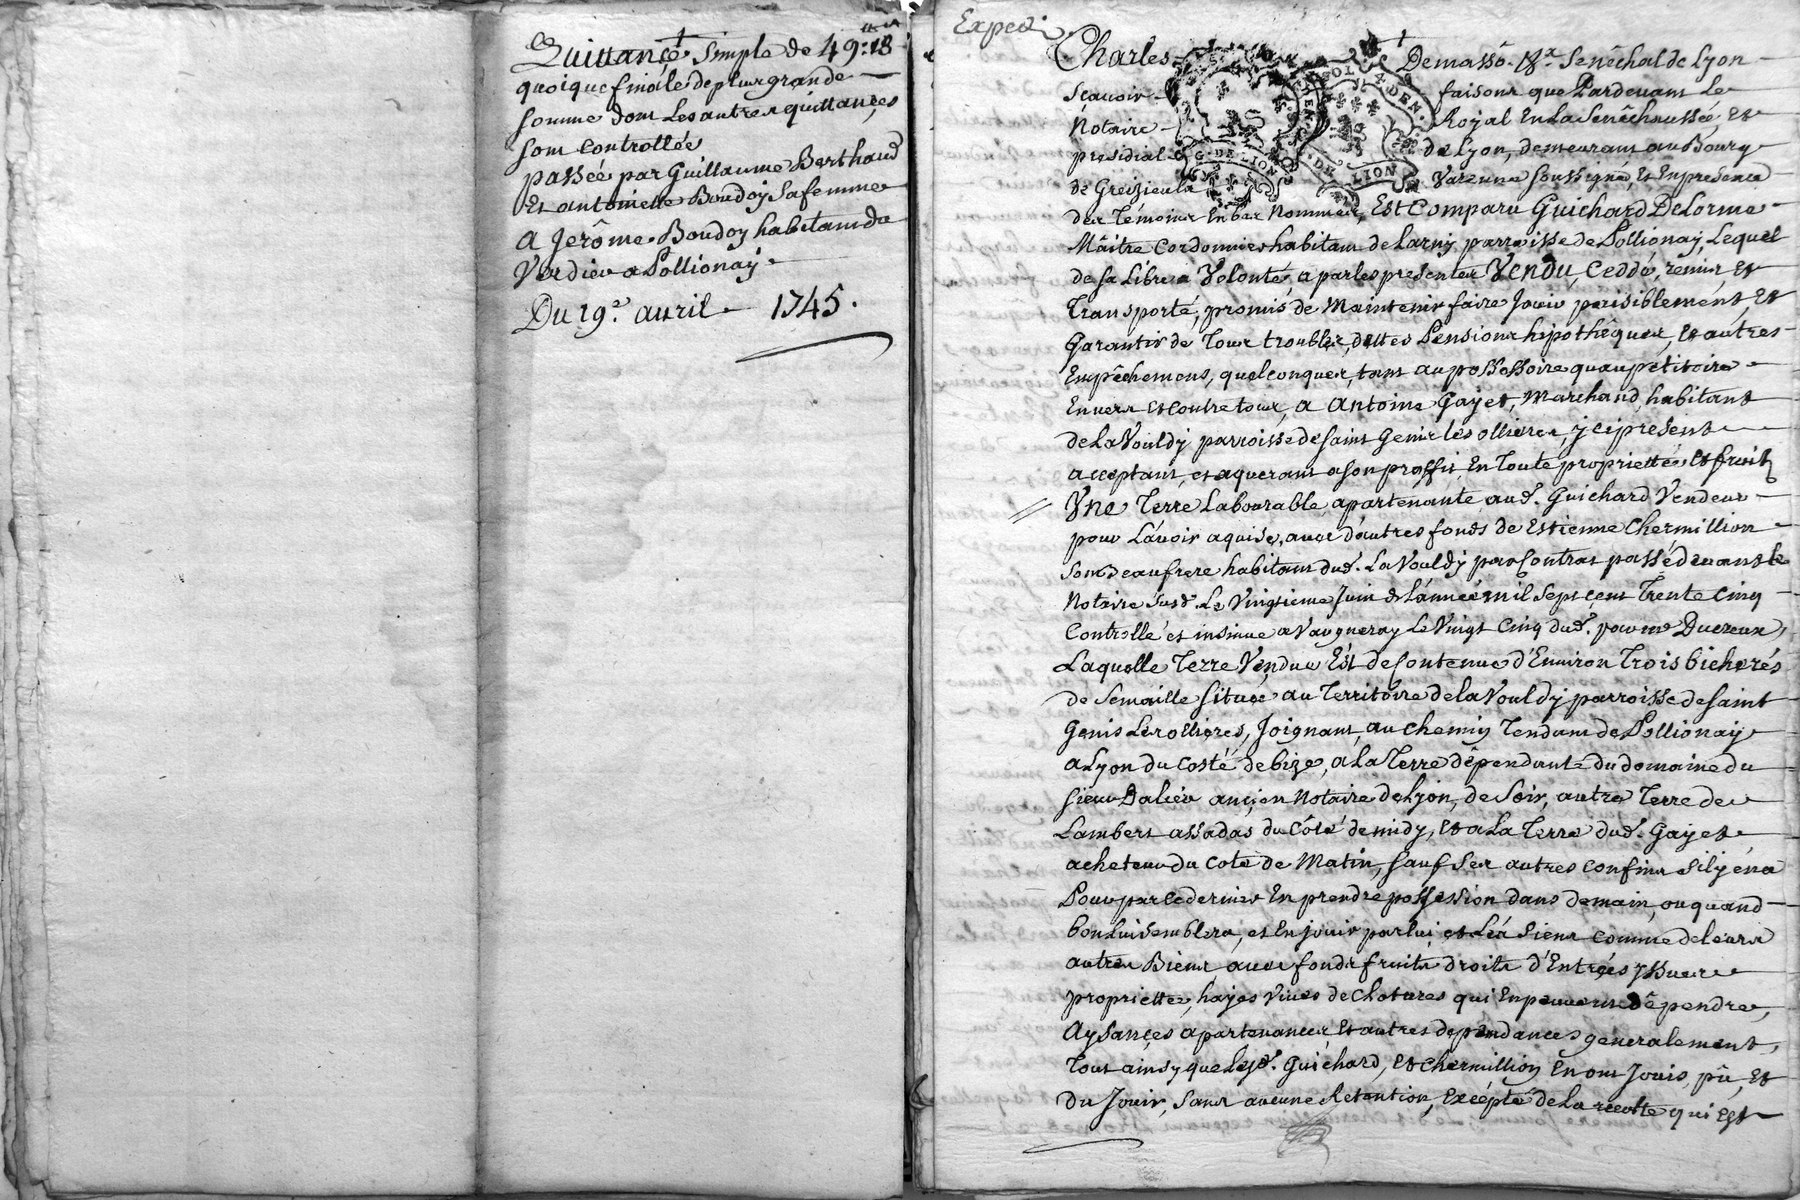 Quittance simple de 49:18
quoique finale de plus grande
somme dont Les autres quittances
sont controllée
passée par Guillaume Berthaud
Et antoinette Boudoy sa femme
A Jerôme Boudoy habitant du
Verdieu a Pollionay
Du 19e. avril 1745.
Exped
Charles Demasso Senêchal de Lyon
Sçavoir faisons que Pardevant Le
Notaire Royal En La Senêchaussée, Et
presidial de Lyon, demeurant au Bourg
de Greizieu la Varenne soussigné, Et En presence
des Témoins En bas Nommés, Est Comparu Guichard Delorme
Maître Cordonnier habitant de Larny parroisse de Pollionay, Lequel
de sa Libre Volonté, a par les presentes Vendu, Ceddé, remis, Et
Transporté, promis de Maintenir faire Jouir paisiblement, Et
Garantir de Tous troubles, dettes Pensions hipothêques, Et autres
Empêchemens, quelconques, tant au possessoire quau petitoire
Envers Et contre tous, a Antoine Gayet, Marchand, habitant
de La Vouldy parroisse de saint Genis les ollieres, y ci present
acceptant, et aquerant a son proffit En Toute proprietté Et fruits
Une Terre Labourable apartenante aud. Guichard Vendeur
pour L'avoir aquise, avec d'autres fonds de Estienne Chermillion
son Beaufrere habitant dud. La Vouldy par Contrat passé devant le
Notaire susd. Le Vingtieme Juin de L'année mil sept cent Trente cinq
Controllé et insinué a Vaugneray Le Vingt Cinq dud. par me Ducreux,
Laquelle Terre Vendue Est de Contenue d'Environ Trois bicherés
de Semaille située au Territoire de la Vouldy parroisse de saint
Genis Les ollieres, Joignant, au chemin Tendant de Pollionay
a Lyon du costé de bize, a La Terre dépendante du domaine du
sieur Dalier ancien Notaire de Lyon, de soir, autre Terre de
Lambert assadas du Côté de midy, Et a La Terre dud. Gayet
acheteur du coté de Matin, sauf ses autres confins sil y en a
Pour par ce dernier En prendre possession dans demain, ou quand
bon Lui semblera, et En jouir par lui et Les siens comme de leurs
autres Biens, avec fonds fruits droits d'Entrées yssues
proprietté, hayes Vives de Clotures qui En peuvent dêpendre,
Aysances apartenances Et autres dependances generalement,
Tout ainsy que Lesd. Guichard, Et Chermillion En ont Jouis, pû, Et
du Jouir, sans aucune Retention, Excépté de La recolte qui Est